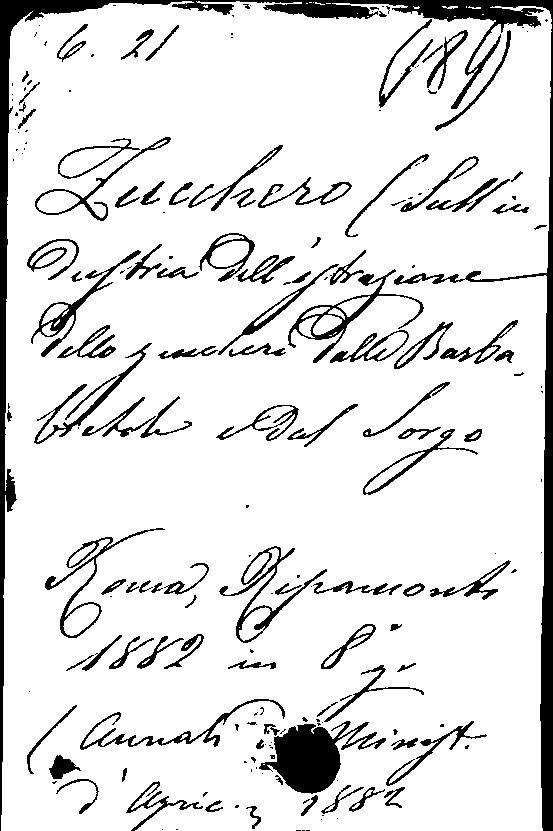 6. 21 (189)
Zucchero (Sull'in-
dustria dell'estrazione
dello zucchero dalle Barba-
bietole e dal Sorgo
Roma, Ripamonti
1882 in 8° g.
(Annali Minist.
d'Agric. 1882